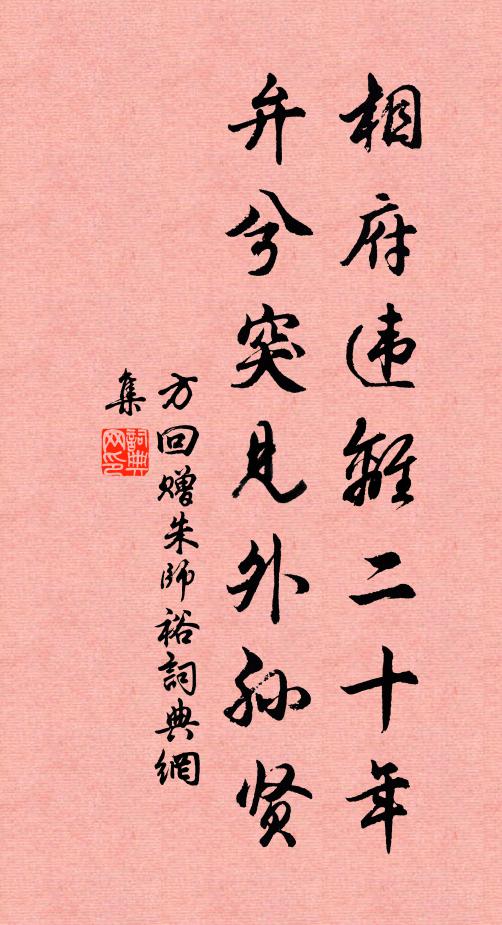 相府违離二十年
弁兮突見外孙贤
方回赠朱師裕詞典網
集
詞典网印